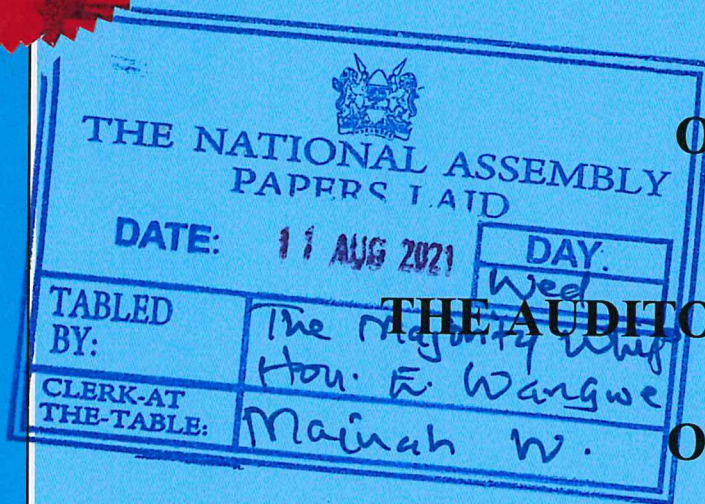 O
THE NATIONAL ASSEMBLY
PAPERS LAID
DATE: 11 AUG 2021 DAY.
Wed
THE AUDITO
TABLED BY: The Majority Whip
Hon. E. Wangwe
CLERK-AT THE-TABLE: Mainah W.
O